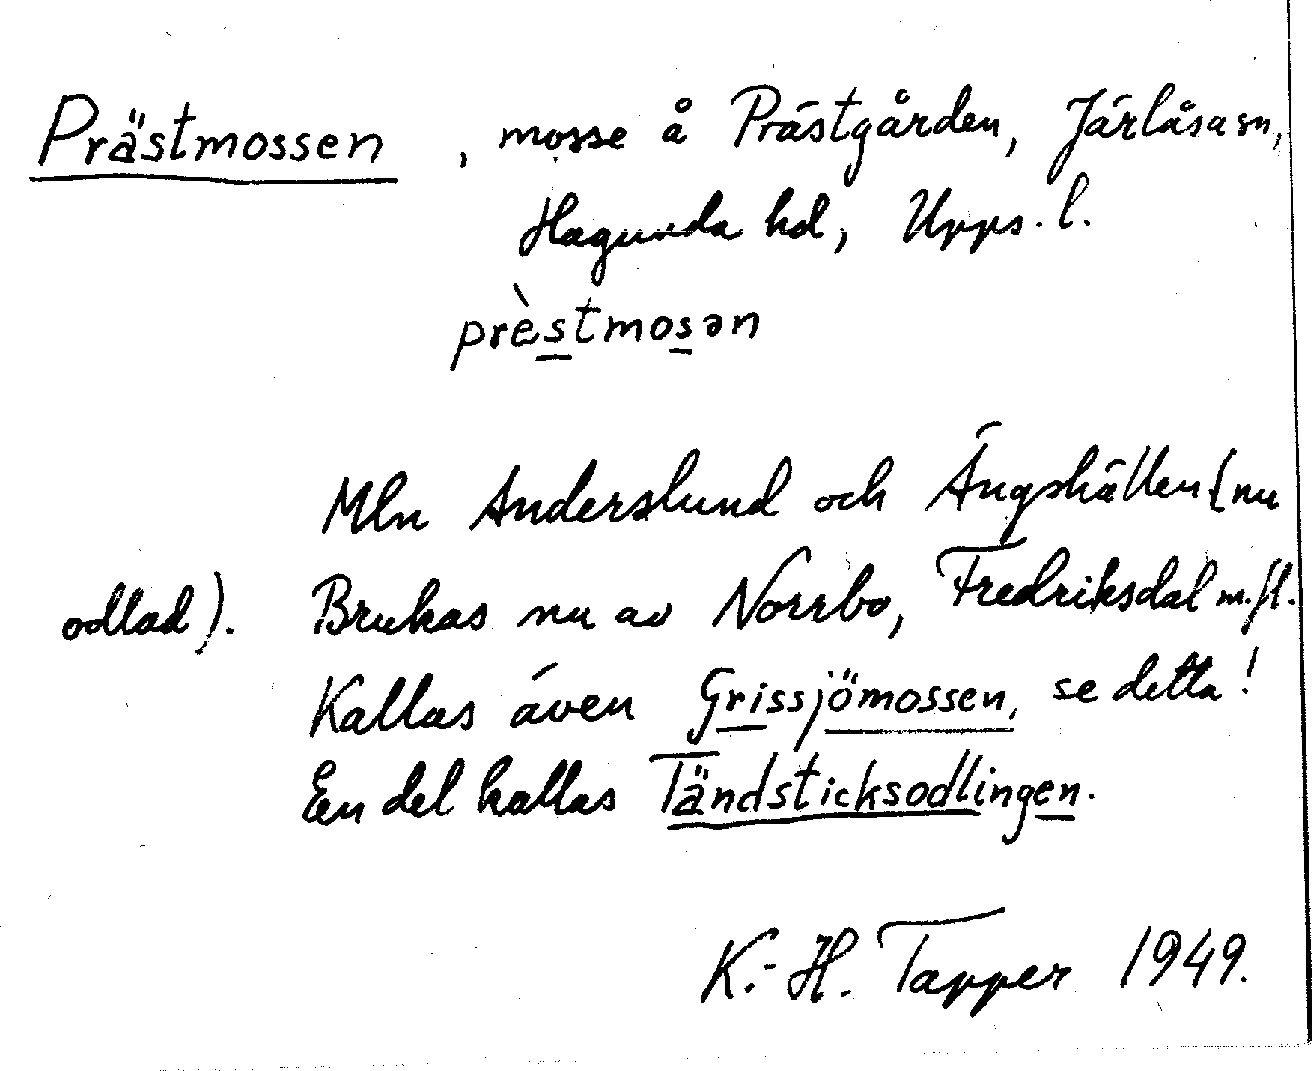 Prästmossen, mosse å Prästgården, Järlåsa sn,
Hagunda hd, Upps. l.
prèstmosən
Mln Anderslund och Ängshällen (nu
odlad). Brukas nu av Norrbo, Fredriksdal m.fl.
Kallas även Grissjömossen, se detta!
En del kallas Tändsticksodlingen.
K.-H. Tapper 1949.